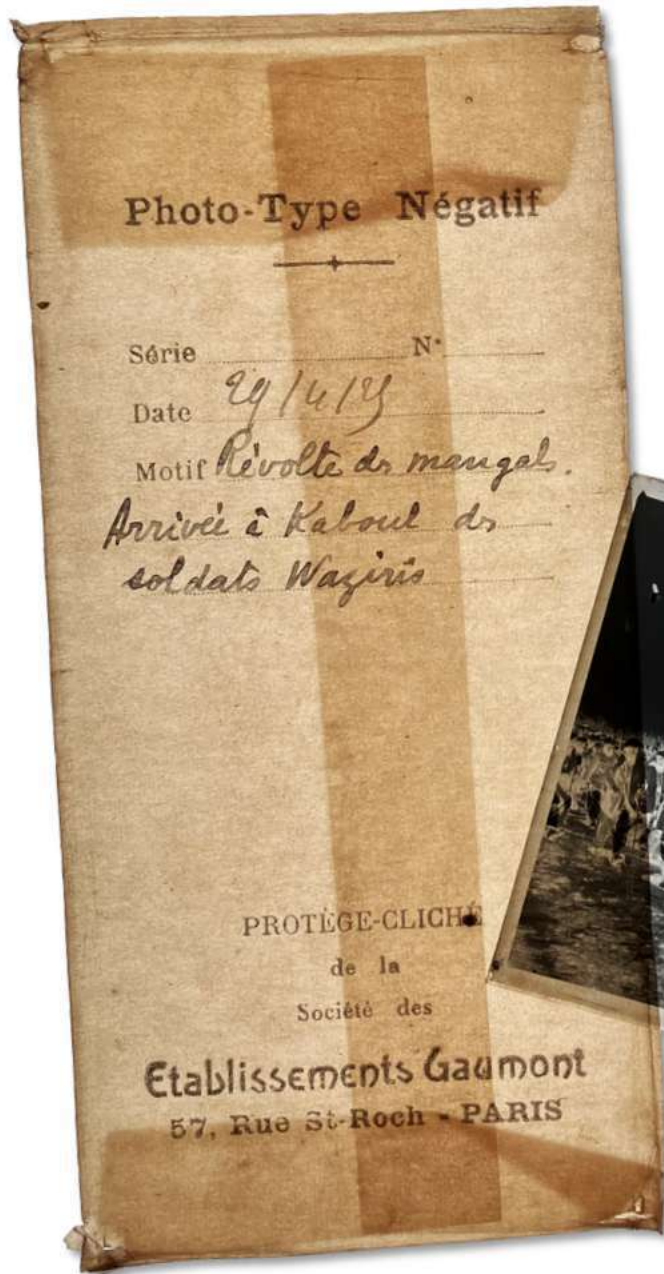 Photo-Type Négatif
Série N°
Date 29/4/25
Motif Révolte des mangals.
Arrivée à Kaboul des
soldats Waziris
PROTÈGE-CLICHÉ
de la
Société des
Etablissements Gaumont
57, Rue St-Roch - PARIS